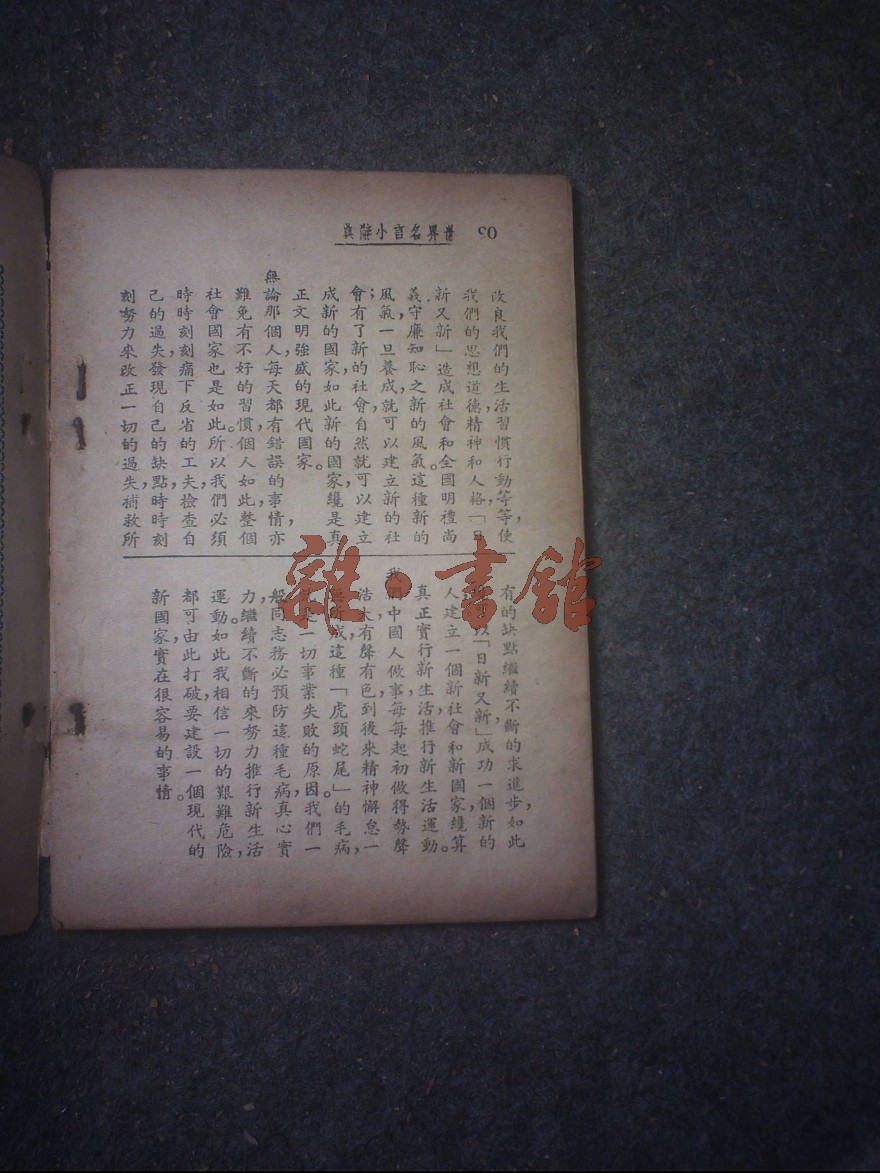 世界名言小辭典
改良我們的生活習慣行動等等,使
我們的思想道德精神和人格「日
新又新」造成社會和全國明禮尚
義,守廉知恥之新的風氣。這種新的
風氣一旦養成,就可以建立新的社
會;有了新的社會,自然就可以建立
成新的國家,如此新的國家,纔是真
正文明強盛的現代國家。
無論那個人,每天都有錯誤的事情,亦
難免有不好的習慣,個人如此,整個
社會國家也是如此。所以我們必須
時時刻刻痛下反省的工夫,檢查自
己的過失,發現自己的缺點,時時刻
刻努力來改正一切的過失,補救所
有的缺點,繼續不斷的求進步,如此
以「日新又新」成功一個新的
人,建立一個新社會和新國家,纔算
真正實行新生活,推行新生活運動。
我們中國人做事,每每起初做得勢聲
浩大,有聲有色,到後來精神懈怠,一
無所成,這種「虎頭蛇尾」的毛病,
是一切事業失敗的原因。我們一
般同志務必預防這種毛病,真心實
力,繼續不斷的來努力推行新生活
運動。如此我相信一切的艱難危險,
都可由此打破,要建設一個現代的
新國家,實在很容易的事情。
雜·書館